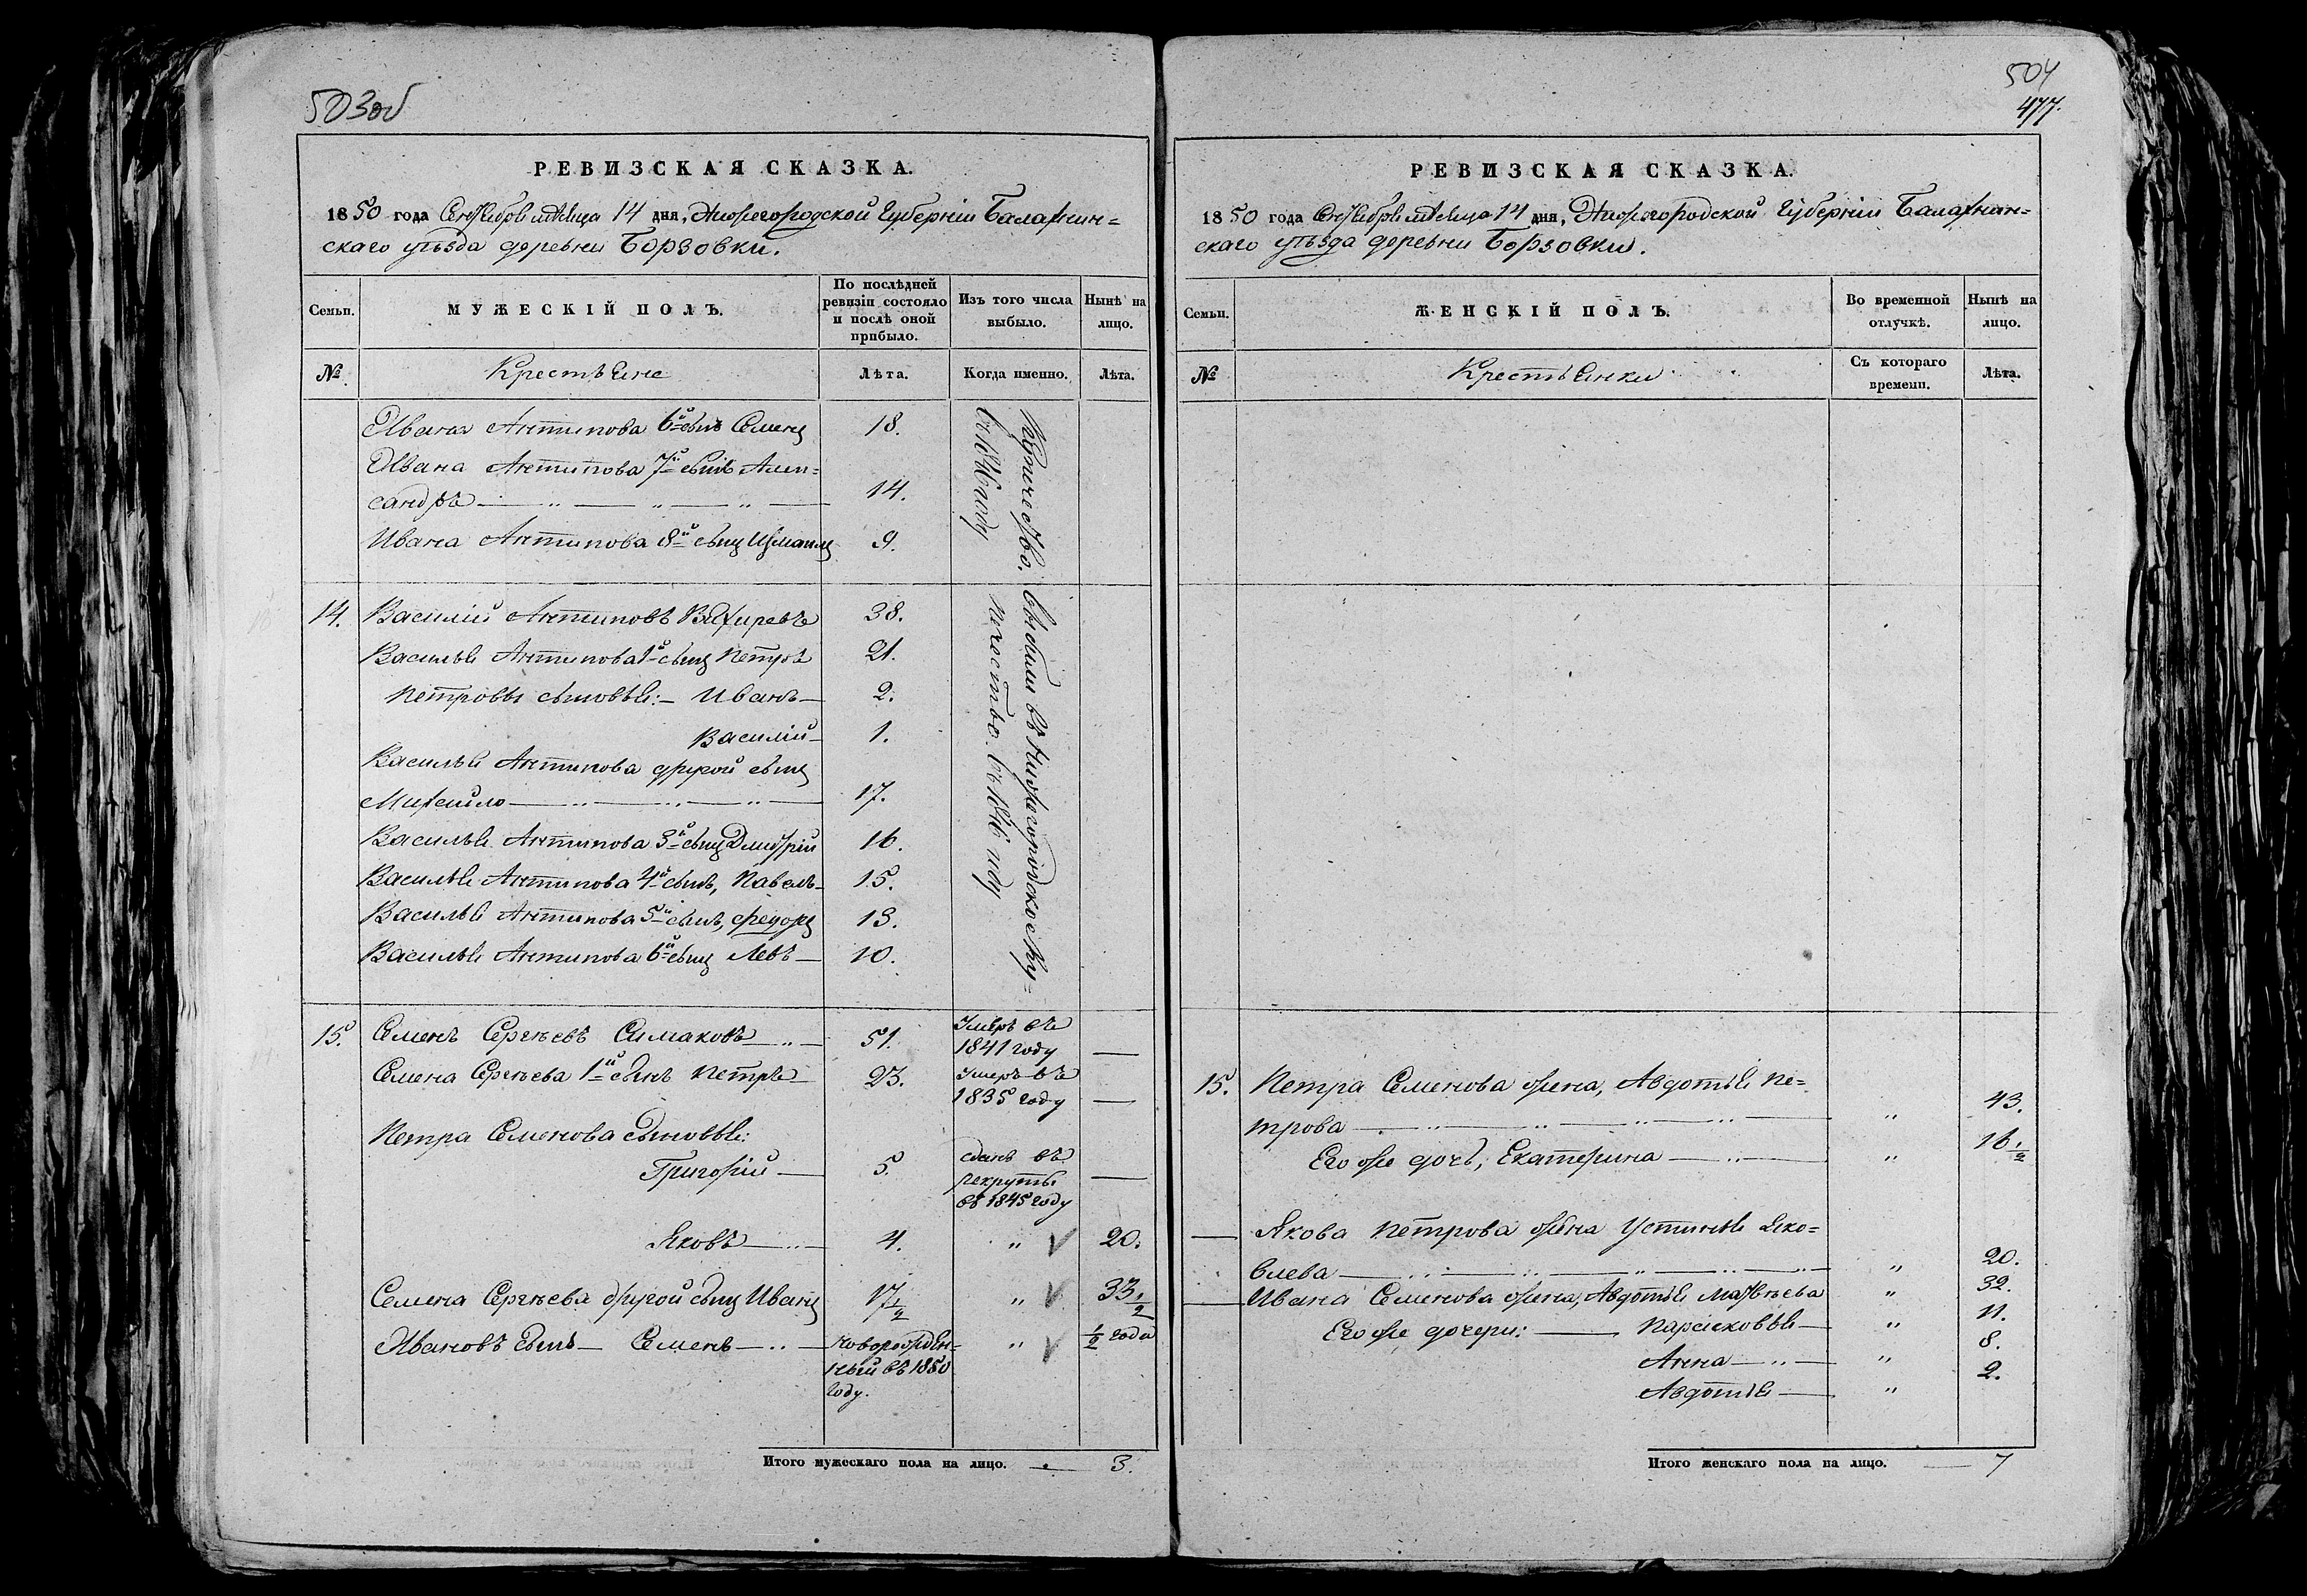 503об
РЕВИЗСКАЯ СКАЗКА.
1850 года Сентября месяца 14 дня, Нижегородской Губерніи Балахнин=
скаго уѣзда деревни Борзовки.
Семьи.
МУЖЕСКІЙ ПОЛЪ.
По послѣдней ревизіи состояло и послѣ оной прибыло.
Изъ того числа выбыло.
Нынѣ на лицо.
№
Крестьяне
Лѣта.
Когда именно.
Лѣта.
Ивана Антипова 6й сынъ Семенъ 18.
Ивана Антипова 7й сынъ Алек=
сандръ 14.
Ивана Антипова 8й сынъ Измаилъ 9.
купечество.
въ 1846 году
14. Василий Антиповъ Вяхиревъ 38.
Василья Антипова 1й сынъ Петръ 21.
Петровы сыновья: Иванъ 2.
Василій 1.
Василья Антипова другой сынъ
Михайло 17.
Василья Антипова 3й сынъ Дмитрій 16.
Василья Антипова 4й сынъ, Павелъ 15.
Василья Антипова 5й сынъ, Федоръ 13.
Василья Антипова 6й сынъ Левъ 10.
выбыли въ Нижегородское Ку=
печество въ 1846 году
15. Семенъ Сергѣевъ Симаковъ 51. Умеръ въ
1841 году —
Семена Сергѣева 1й сынъ Петръ 23. Умеръ въ
1835 году —
Петра Семенова сыновья:
Григорій 5. сданъ въ
рекруты —
въ 1845 году
Яковъ 4. „ √ 20.
Семена Сергѣева другой сынъ Иванъ 17 1/2 „ √ 33 1/2
Ивановъ сынъ Семенъ новорожден=
ный въ 1850
году. „ √ 1/2 года
Итого мужескаго пола на лицо. 3.
504
477.
РЕВИЗСКАЯ СКАЗКА.
1850 года Сентября месяца 14 дня, Нижегородской Губерніи Балахнин=
скаго уѣзда деревни Борзовки.
Семьи.
ЖЕНСКІЙ ПОЛЪ.
Во временной отлучкѣ.
Нынѣ на лицо.
№
Крестьянки
Съ котораго времени.
Лѣта.
15. Петра Семенова жена, Авдотья Пе=
трова „ 43.
Его же дочь, Екатерина „ 16 1/2
— Якова Петрова жена Устинья Яко=
влева „ 20.
— Ивана Семенова жена, Авдотья Матвѣева „ 32.
Его же дочери: Парасковья „ 11.
Анна „ 8.
Авдотья „ 2.
Итого женскаго пола на лицо. 7